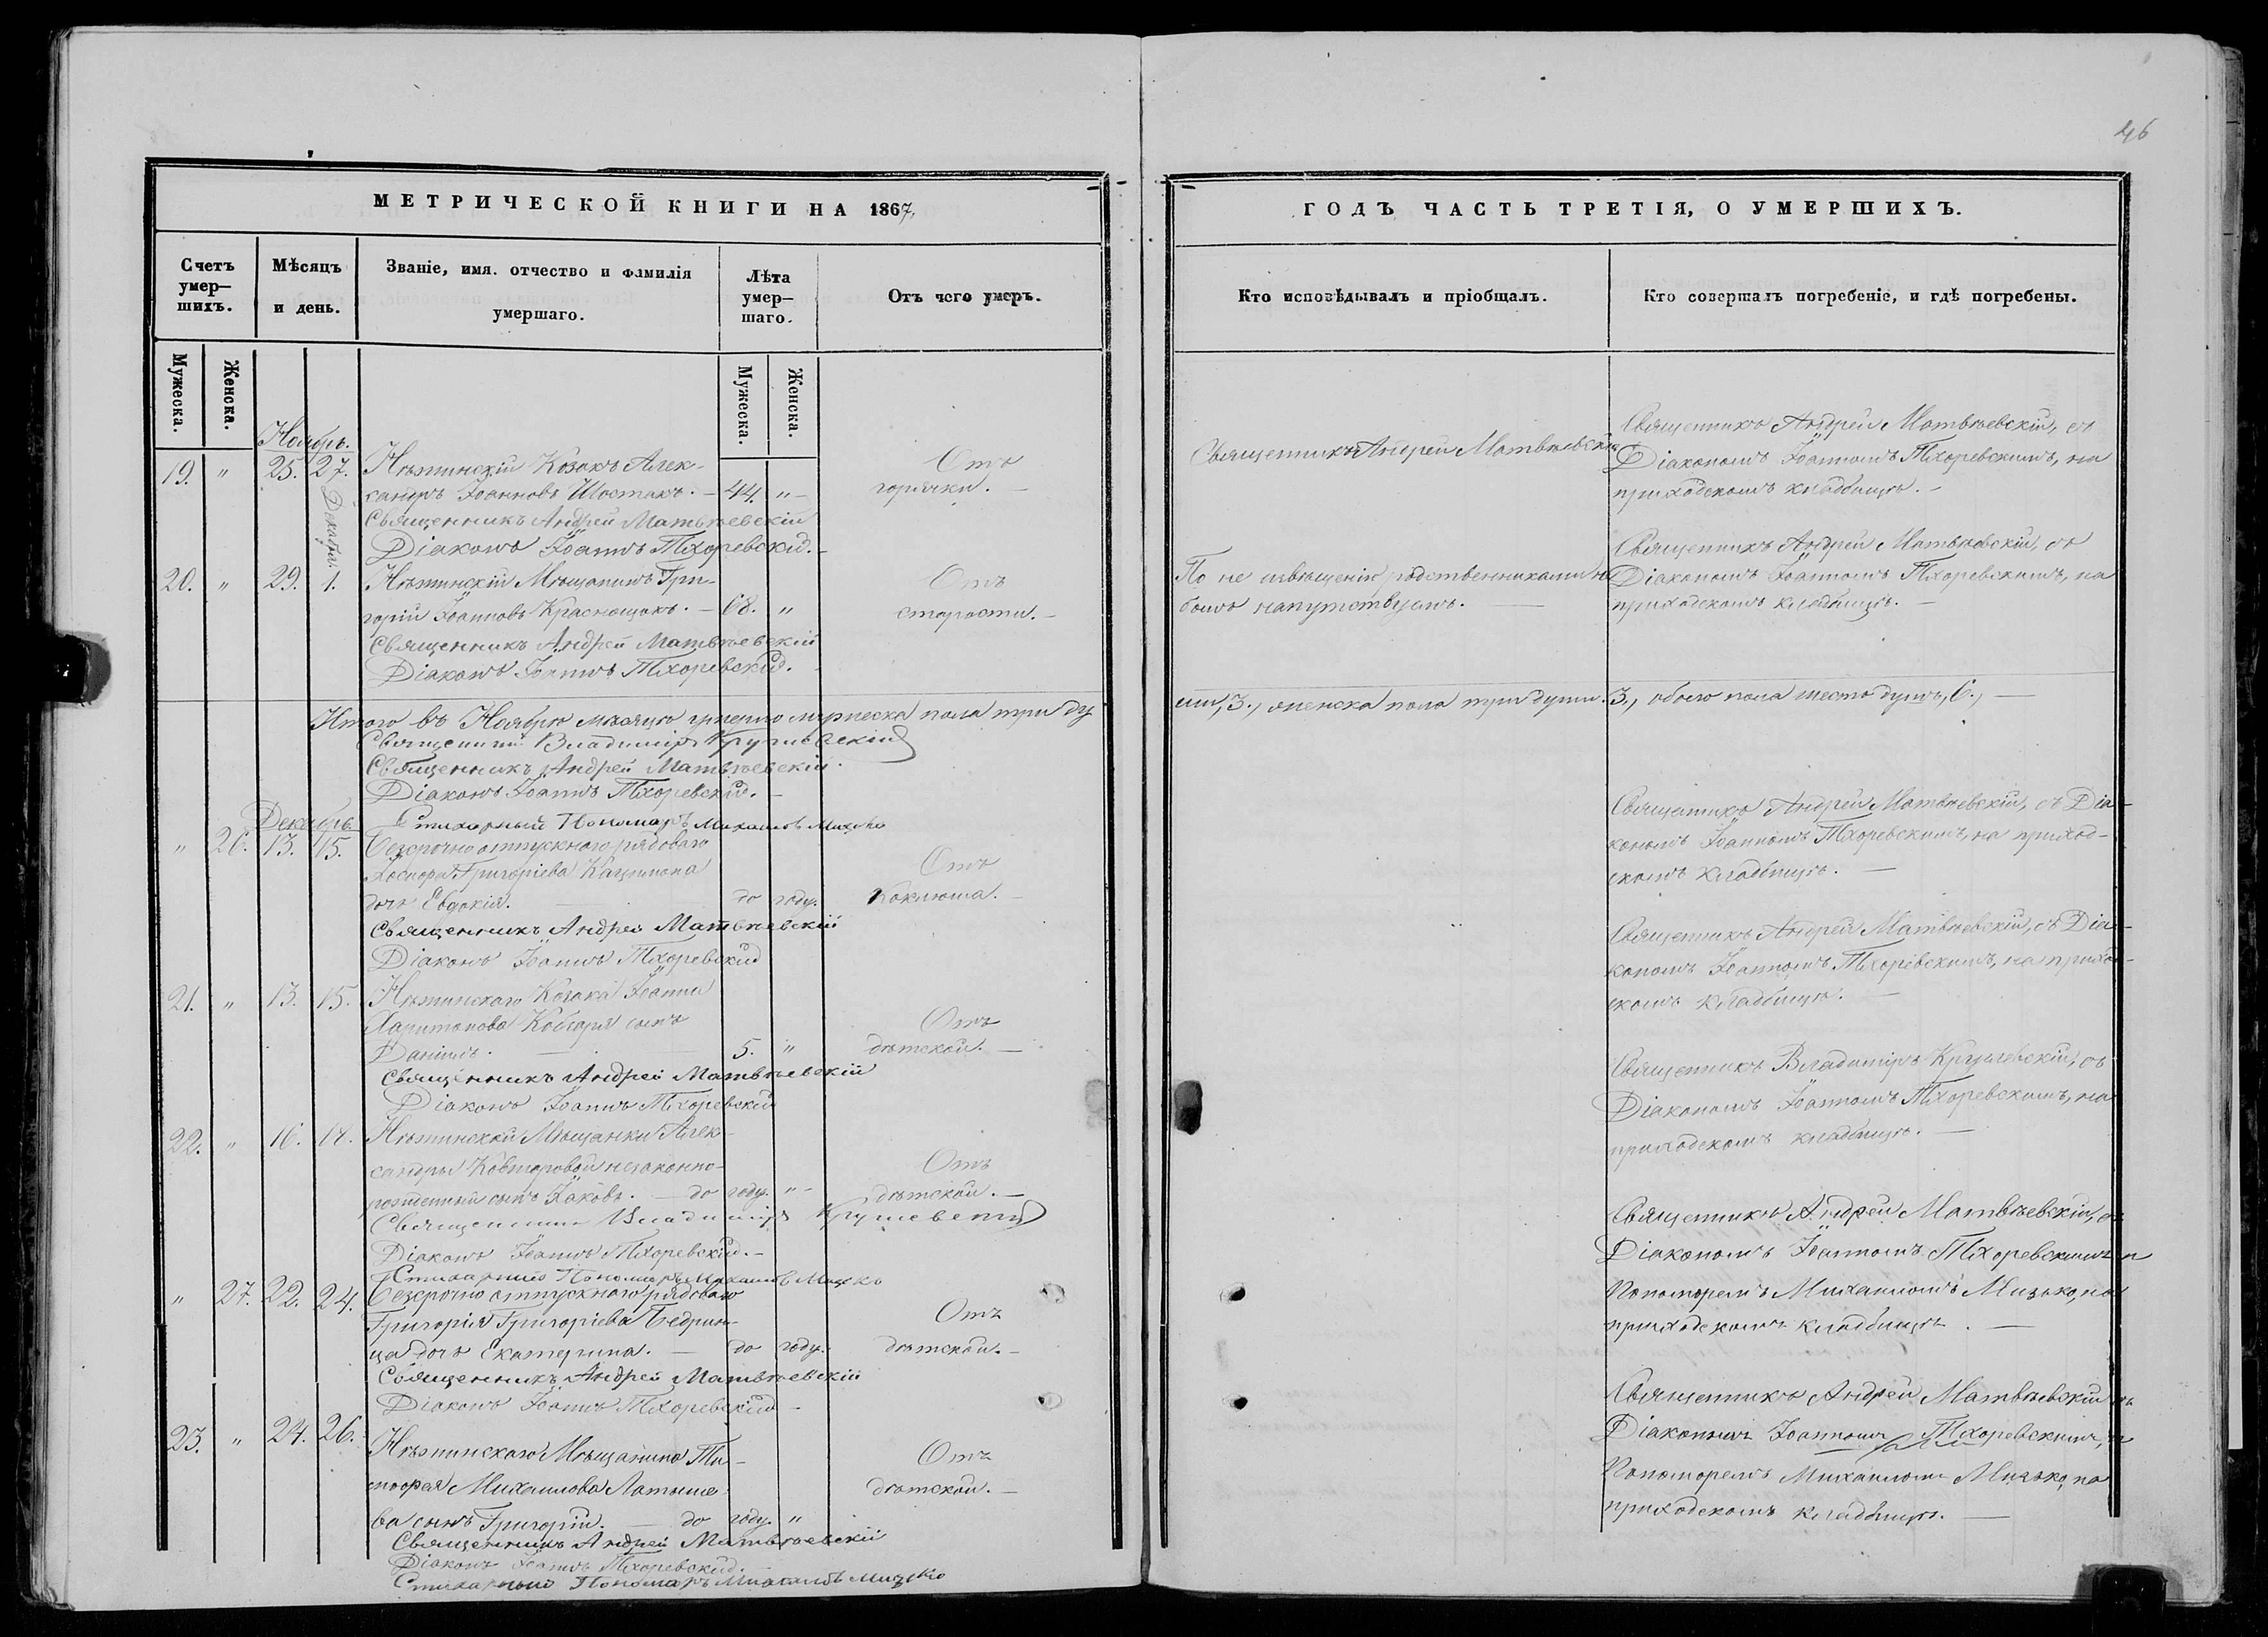 46
МЕТРИЧЕСКОЙ КНИГИ НА 1867,
ГОДЪ ЧАСТЬ ТРЕТІЯ, О УМЕРШИХЪ.
Счетъ умер-
шихъ.
Мѣсяцъ
и день.
Званіе, имя. отчество и фамилія
умершаго.
Лѣта
умер-
шаго.
Отъ чего умеръ.
Кто исповѣдывалъ и пріобщалъ.
Кто совершалъ погребеніе, и гдѣ погребены.
Мужеска.
Женска.
Мужеска.
Женска.
Ноябрь.
19. " 25. 27. Нѣжинскій Козакъ Алек-
сандръ Іоанновъ Шостакъ. - 44. " -
Отъ
горячки. -
Священникъ Андрей Матвѣевскій
Священникъ Андрей Матвѣевскій, съ
Діакономъ Іоанномъ Тхоревскимъ, на
приходскомъ кладбищѣ. -
Священникъ Андрей Матвѣевскій
Діаконъ Іоаннъ Тхоревскій. -
Декабрь
20. " 29. 1. Нѣжинскій Мѣщанинъ Гри-
горій Іоанновъ Краснощокъ. - 68. "
Отъ
старости. -
По не извѣщенію родственниками не
былъ напутствуемъ. -
Священникъ Андрей Матвѣевскій, съ
Діакономъ Іоанномъ Тхоревскимъ, на
приходскомъ кладбищѣ. -
Священникъ Андрей Матвѣевскій
Діаконъ Іоаннъ Тхоревскій.
Итого въ Ноябрѣ мѣсяцѣ умерло мужеска пола три ду
ши, 3., женска пола три души. 3., обоего пола шесть душъ, 6., -
Священникъ Владиміръ Крушевскій
Священникъ Андрей Матвѣевскій.
Діаконъ Іоаннъ Тхоревскій. -
Стихарный Пономарь Михаилъ
Декабрь
" 26. 13. 15. Безсрочно отпускнаго рядоваго
Григоріева
дочь Евдокія. - до году.
Отъ
Коклюша. -
Священникъ Андрей Матвѣевскій, съ Діа-
кономъ Іоанномъ Тхоревскимъ, на приход-
скомъ кладбищѣ. -
Священникъ Андрей Матвѣевскій
Діаконъ Іоаннъ Тхоревскій
21. " 13. 15. Нѣжинскаго Козака Іоанна
Харитонова Кобзаря сынъ
Даніилъ. - 5. "
Отъ
дѣтской. -
Священникъ Андрей Матвѣевскій, съ Діа-
кономъ Іоанномъ Тхоревскимъ, на приход-
скомъ кладбищѣ. -
Священникъ Андрей Матвѣевскій
Діаконъ Іоаннъ Тхоревскій
22. " 16. 18. Нѣжинской Мѣщанки Алек-
сандры незаконно-
рожденный сынъ Іаковъ. - до году. " -
Отъ
дѣтской. -
Священникъ Владиміръ Крушевскій, съ
Діакономъ Іоанномъ Тхоревскимъ, на
приходскомъ кладбищѣ. -
Священникъ Владиміръ Крушевскій
Діаконъ Іоаннъ Тхоревскій. -
Стихарный Пономарь Михаилъ
" 27. 22. 24. Безсрочно отпускнаго рядоваго
Григорія Григоріева Бедрин-
ца дочь Екатерина. - до году.
Отъ
дѣтской. -
Священникъ Андрей Матвѣевскій, съ
Діакономъ Іоанномъ Тхоревскимъ и
Пономоремъ Михаиломъ Мизько, на
приходскомъ кладбищѣ. -
Священникъ Андрей Матвѣевскій
Діаконъ Іоаннъ Тхоревскій -
23. " 24. 26. Нѣжинскаго Мѣщанина Ти-
мофея Михаилова Латыше-
ва сынъ Григорій. - до году. "
Отъ
дѣтской. -
Священникъ Андрей Матвѣевскій съ
Діакономъ Іоанномъ Тхоревскимъ, и
Пономоремъ Михаиломъ Мизько, на
приходскомъ кладбищѣ. -
Священникъ Андрей Матвѣевскій
Діаконъ Іоаннъ Тхоревскій. -
Стихарный Пономарь Михаилъ